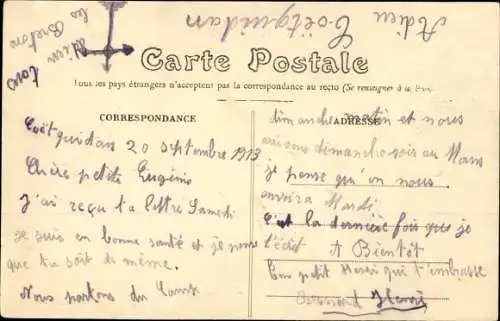 Adieu Coëtquidan
les Bretons
Carte Postale
Tous les pays étrangers n'acceptent pas la correspondance au recto (Se renseigner à la
CORRESPONDANCE
ADRESSE
Coëtquidan 20 septembre 1913
Chère petite Eugénie
J'ai reçu ta lettre Samedi
je suis en bonne santé et je pense
que tu soit de même.
Nous partons du Camp
dimanche matin et nous
arrivons dimanche soir au Mans
je pense qu'on nous
envoira Mardi
C'est la dernière fois que je
t'écrit A Bientôt
Ton petit Henri qui t'embrasse
Henri